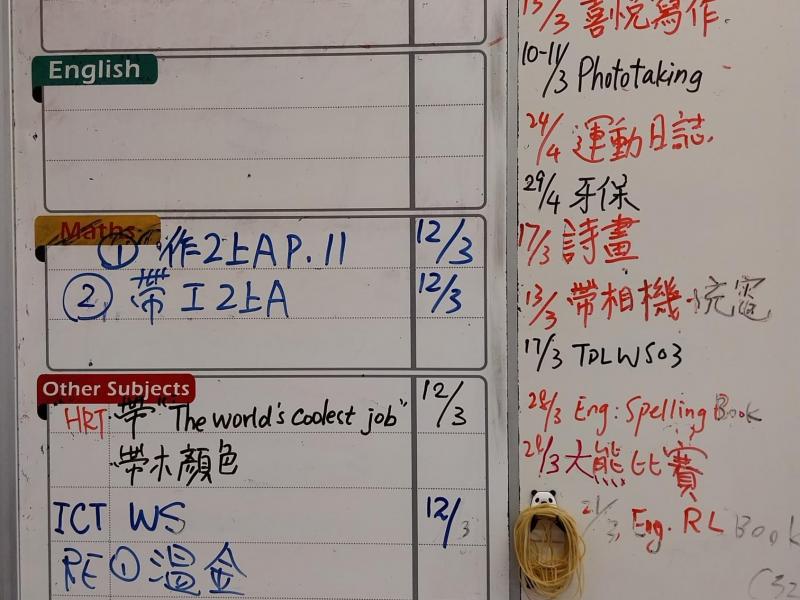 English
Maths
① 作2上A P.11 12/3
② 帶工2上A 12/3
Other Subjects
HRT 帶 "The world's coolest job" 12/3
帶木顏色
ICT WS 12/3
RE ① 溫金
13/3 喜悅寫作
10-11/3 Phototaking
24/4 運動日誌
29/4 牙保
17/3 詩畫
13/3 帶相機+充電
17/3 TDLWS03
28/3 Eng: Spelling Book
21/3 大熊比賽
21/3 Eng. RL Book
(32